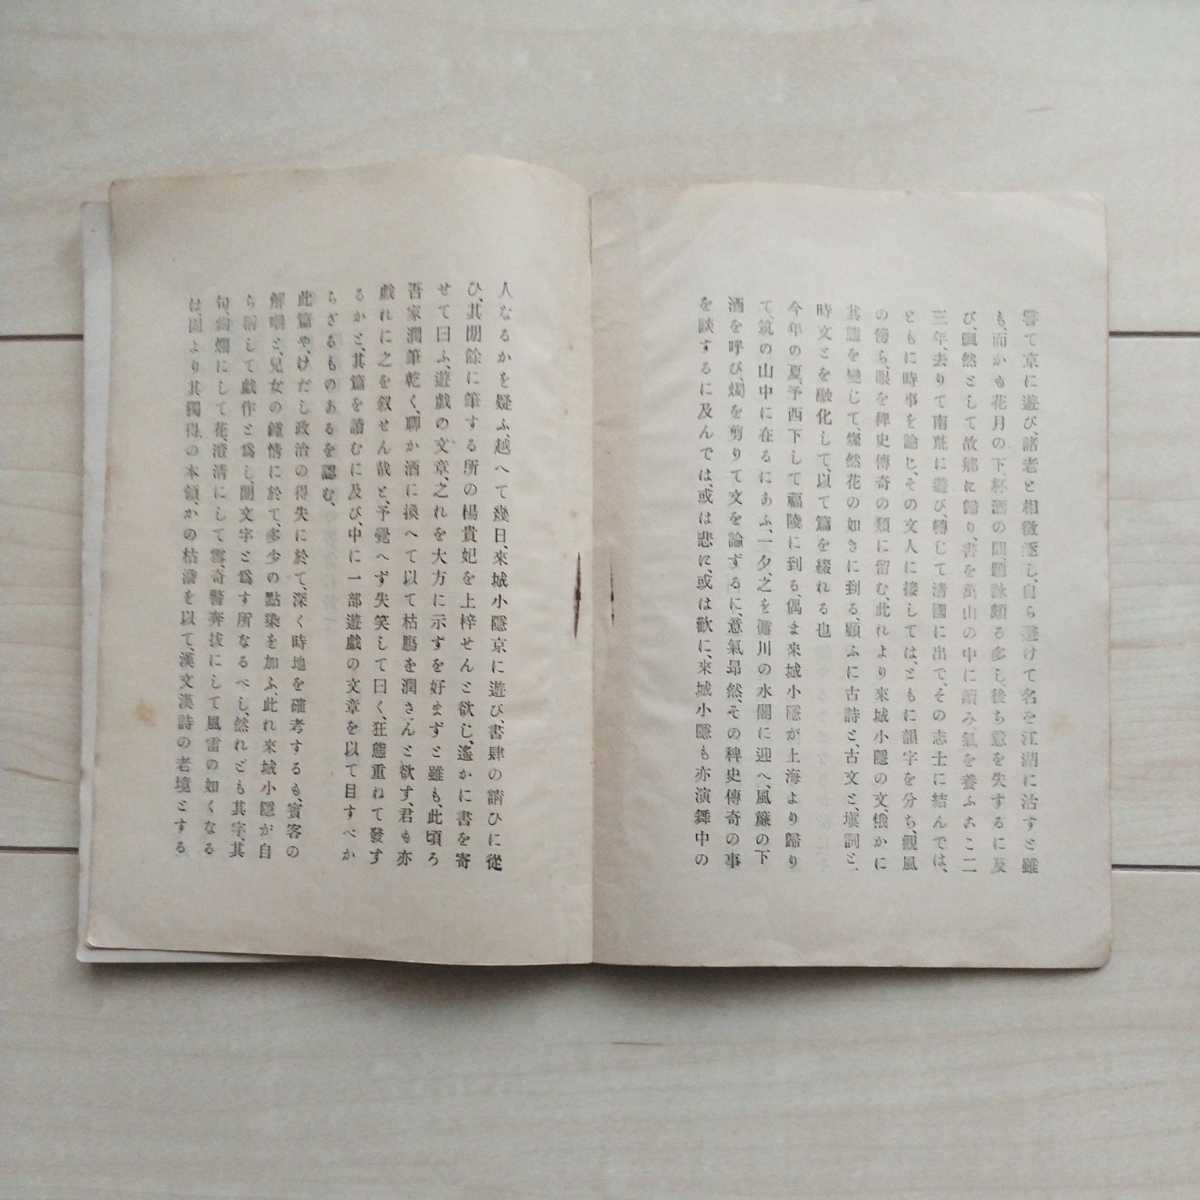 嘗て京に遊び、諸老と相徴逐し、自ら避けて名を江湖に沽すと雖
も、而かも花月の下、杯酒の間、題詠頗る多し、後ち意を失するに及
び、飄然として故郷に歸り、書を萬山の中に讀み氣を養ふこと二
三年、去りて南荒に遊び、轉じて清國に出で、その志士に結んでは、
ともに時事を論じ、その文人に接しては、ともに韻字を分ち、觀風
の傍ら、眼を稗史傳奇の類に留む、此れより來城小隱の文、俄かに
其體を變じて、燦然花の如きに到る、顧ふに古詩と、古文と、塡詞と、
時文とを融化して、以て篇を綴れる也
今年の夏、予西下して福陵に到る、偶ま來城小隱が上海より歸り
て、筑の山中に在るにあふ、一夕、之を儞川の水閣に迎へ、風簾の下
酒を呼び、燭を剪りて文を論ずるに、意氣昂然、その稗史傳奇の事
を談ずるに及んでは、或は悲に、或は歡に、來城小隱も亦演舞中の
人なるかを疑ふ、越へて幾日、來城小隱京に遊び、書肆の請ひに從
ひ、其閒餘に筆する所の楊貴妃を上梓せんと欲し、遙かに書を寄
せて曰ふ、遊戲の文章、之れを大方に示すを好まずと雖も、此頃ろ
吾家潤筆乾く、聊か酒に換へて以て枯腸を潤さんと欲す、君も亦
戲れに之を叙せん哉と、予覺へず失笑して曰く、狂態重ねて發す
るかと、其篇を讀むに及び、中に一部遊戲の文章を以て目すべか
らざるものあるを認む、
此篇や、けだし政治の得失に於て、深く時地を確考するも、賓客の
解嘲と、兒女の鍾情に於て、多少の點染を加ふ、此れ來城小隱が自
ら稱して戲作と爲し、閒文字と爲す所なるべし、然れども其字、其
句、絢爛にして花、澄淸にして雪、奇警奔拔にして風雷の如くなる
は、固より其獨得の本領、かの枯澹を以て、漢文漢詩の老境とする